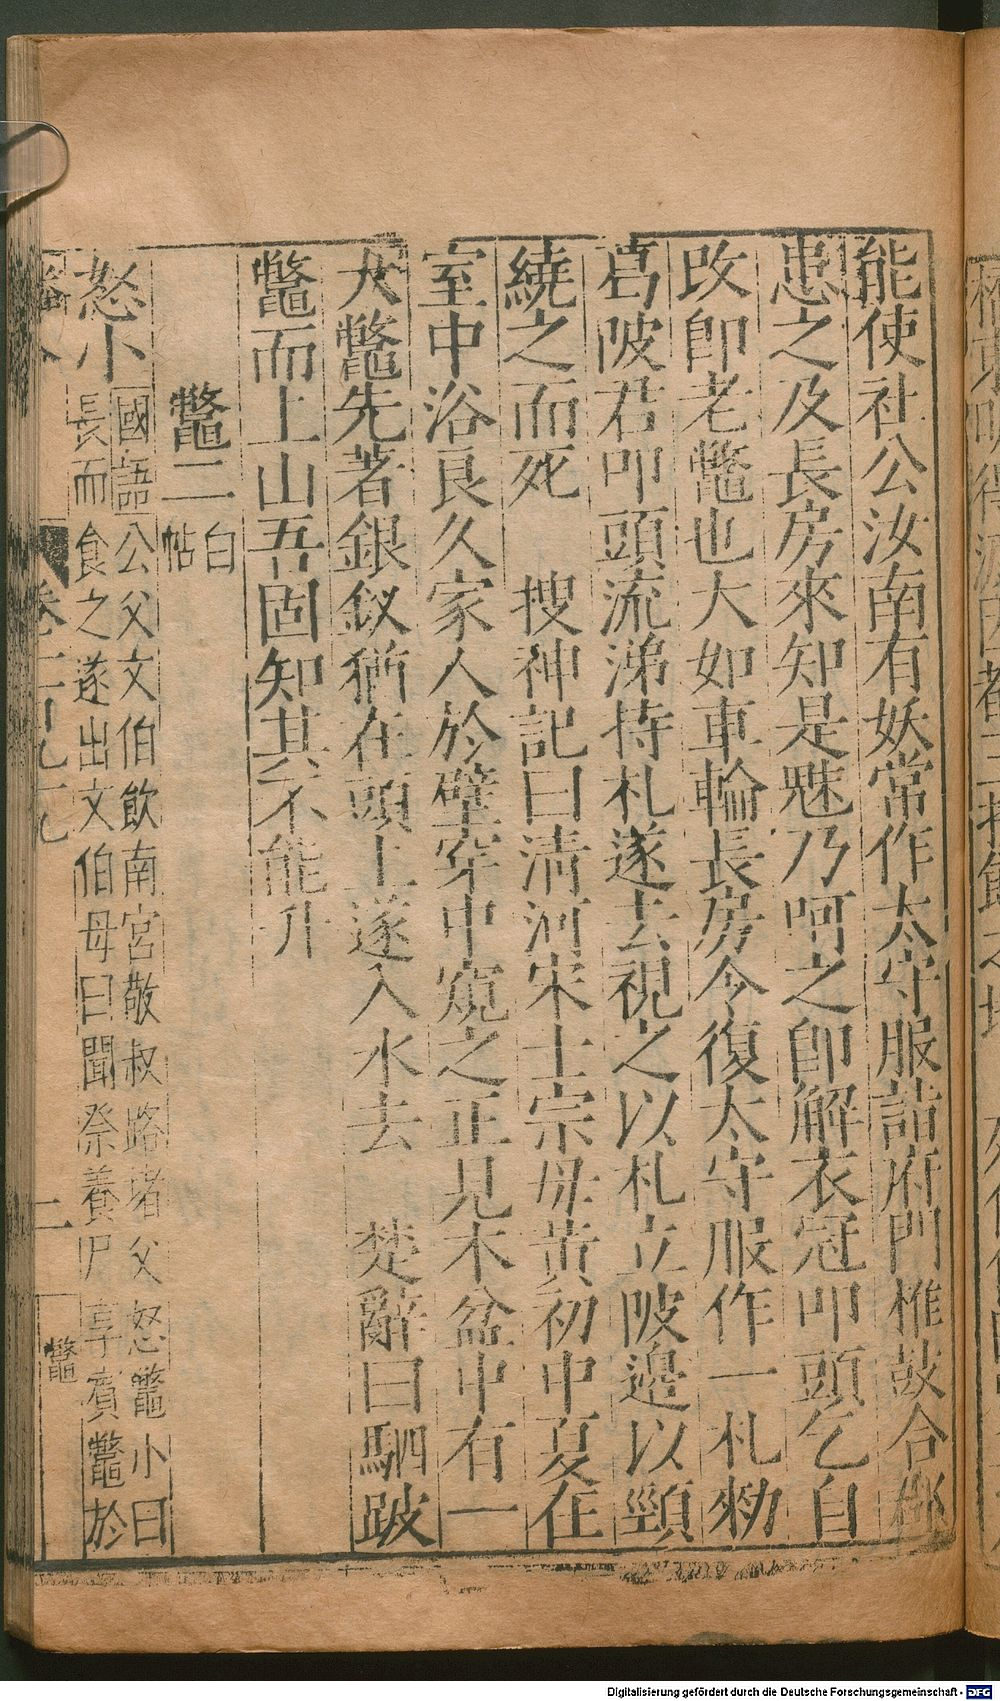 能使社公汝南有妖常作太守服詣府門椎鼓合郡
患之及長房來知是魅乃呵之卽解衣冠叩頭乞自
改卽老鼈也大如車輪長房令復太守服作一札勑
葛陂君叩頭流涕持札遂去視之以札立陂邊以頸
繞之而死 搜神記曰清河宋士宗母黄初中夏在
室中浴良久家人於壁穿中窺之正見木盆中有一
大鼈先著銀釵猶在頭上遂入水去 楚辭曰駟跛
鼈而上山吾固知其不能升
鼈二 白帖
怒小 國語公父文伯飲南宮敬叔 路堵父怒鼈小曰
長而食之遂出文伯母曰聞祭養尸享賓鼈於
卷二百九十九 二 鼈
Digitalisierung gefördert durch die Deutsche Forschungsgemeinschaft - DFG